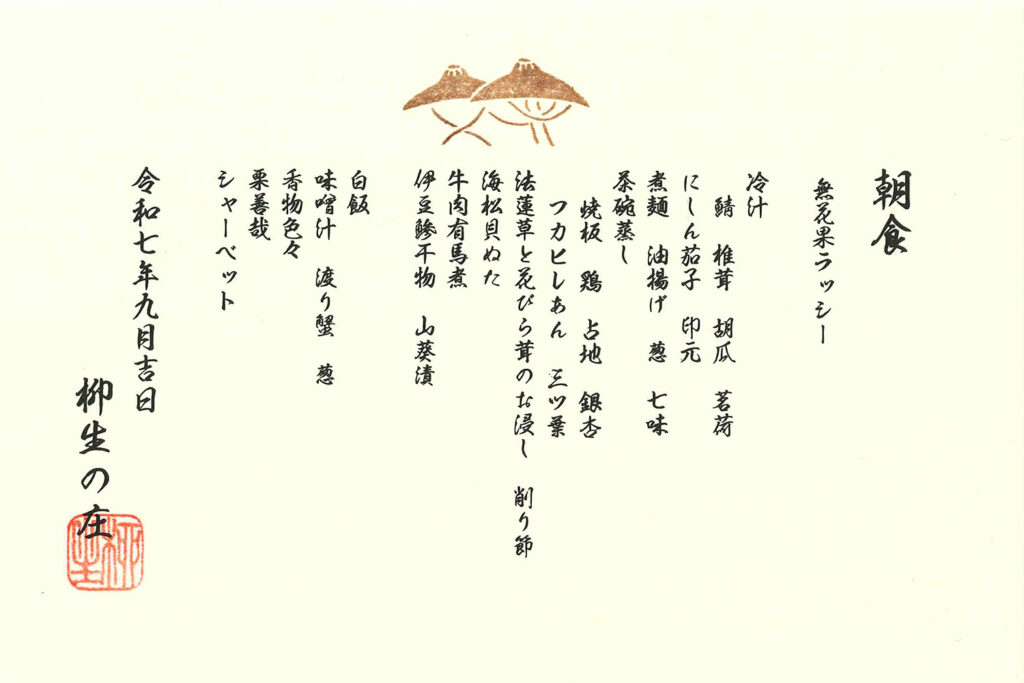 朝食
無花果ラッシー
冷汁
鯖 椎茸 胡瓜 茗荷
にしん茄子 印元
煮麺 油揚げ 葱 七味
茶碗蒸し
焼板 鶏 占地 銀杏
フカヒレあん 三ツ葉
法蓮草と花びら茸のお浸し 削り節
海松貝ぬた
牛肉有馬煮
伊豆鰺干物 山葵漬
白飯
味噌汁 渡り蟹 葱
香物色々
栗善哉
シャーベット
令和七年九月吉日
柳生の庄
柳生